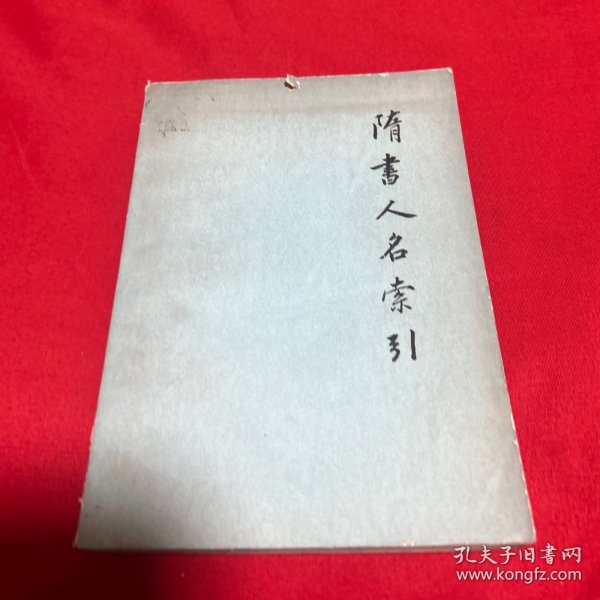 隋書人名索引
孔夫子旧書网
www.kongfz.com